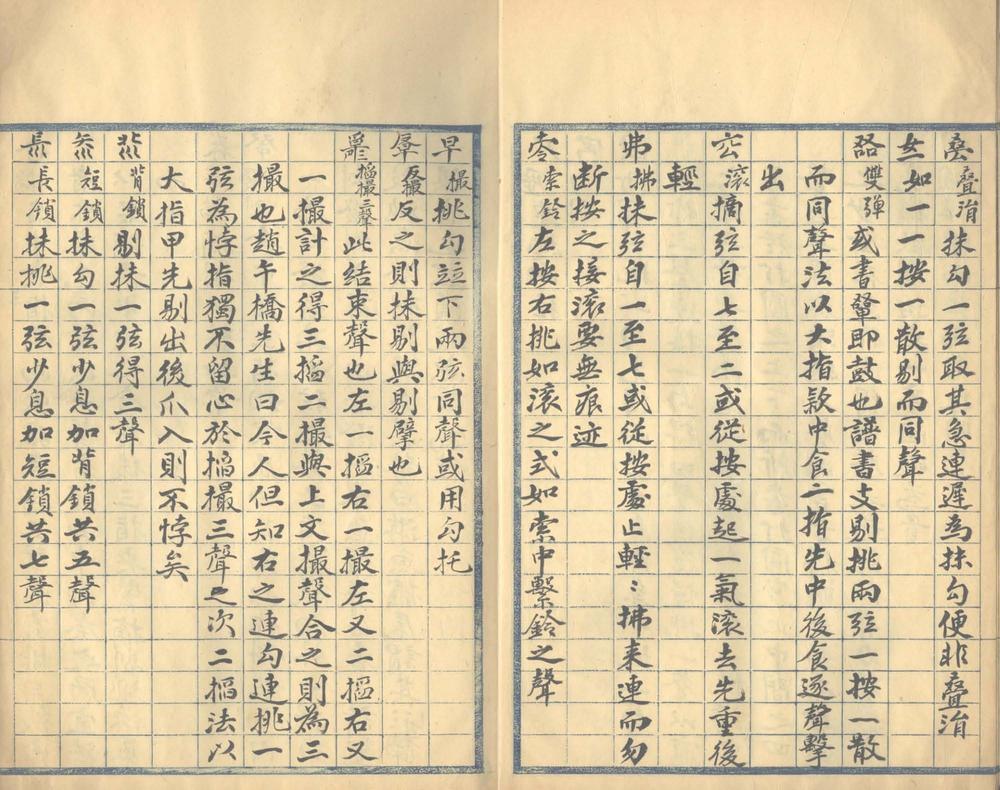 疊涓抹勾一弦取其急連遲為抹勾便非疊涓
如一一按一散剔而同聲
雙彈或書鼜即鼓也譜書支剔挑兩弦一按一散
而同聲法以大指欵中食二指先中後食逐聲擊
出
滾摘弦自七至二或從按處起一氣滾去先重後
輕
弗拂抹弦自一至七或從按處止輕〻拂来連而勿
断按之接滾要無痕迹
索鈴左按右挑如滾之式如索中繫鈴之聲
早撮挑勾竝下兩弦同聲或用勾托
反撮反之則抹剔與剔擘也
搯撮三聲此結束聲也左一搯右一撮左又二搯右又
一撮計之得三搯二撮與上文撮聲合之則為三
撮也趙午橋先生曰今人但知右之連勾連挑一
弦為悖指獨不留心於搯撮三聲之次二搯法以
大指甲先剔出後爪入則不悖矣
背鎖剔抹一弦得三聲
短鎖抹勾一弦少息加背鎖共五聲
長鎖抹挑一弦少息加短鎖共七聲